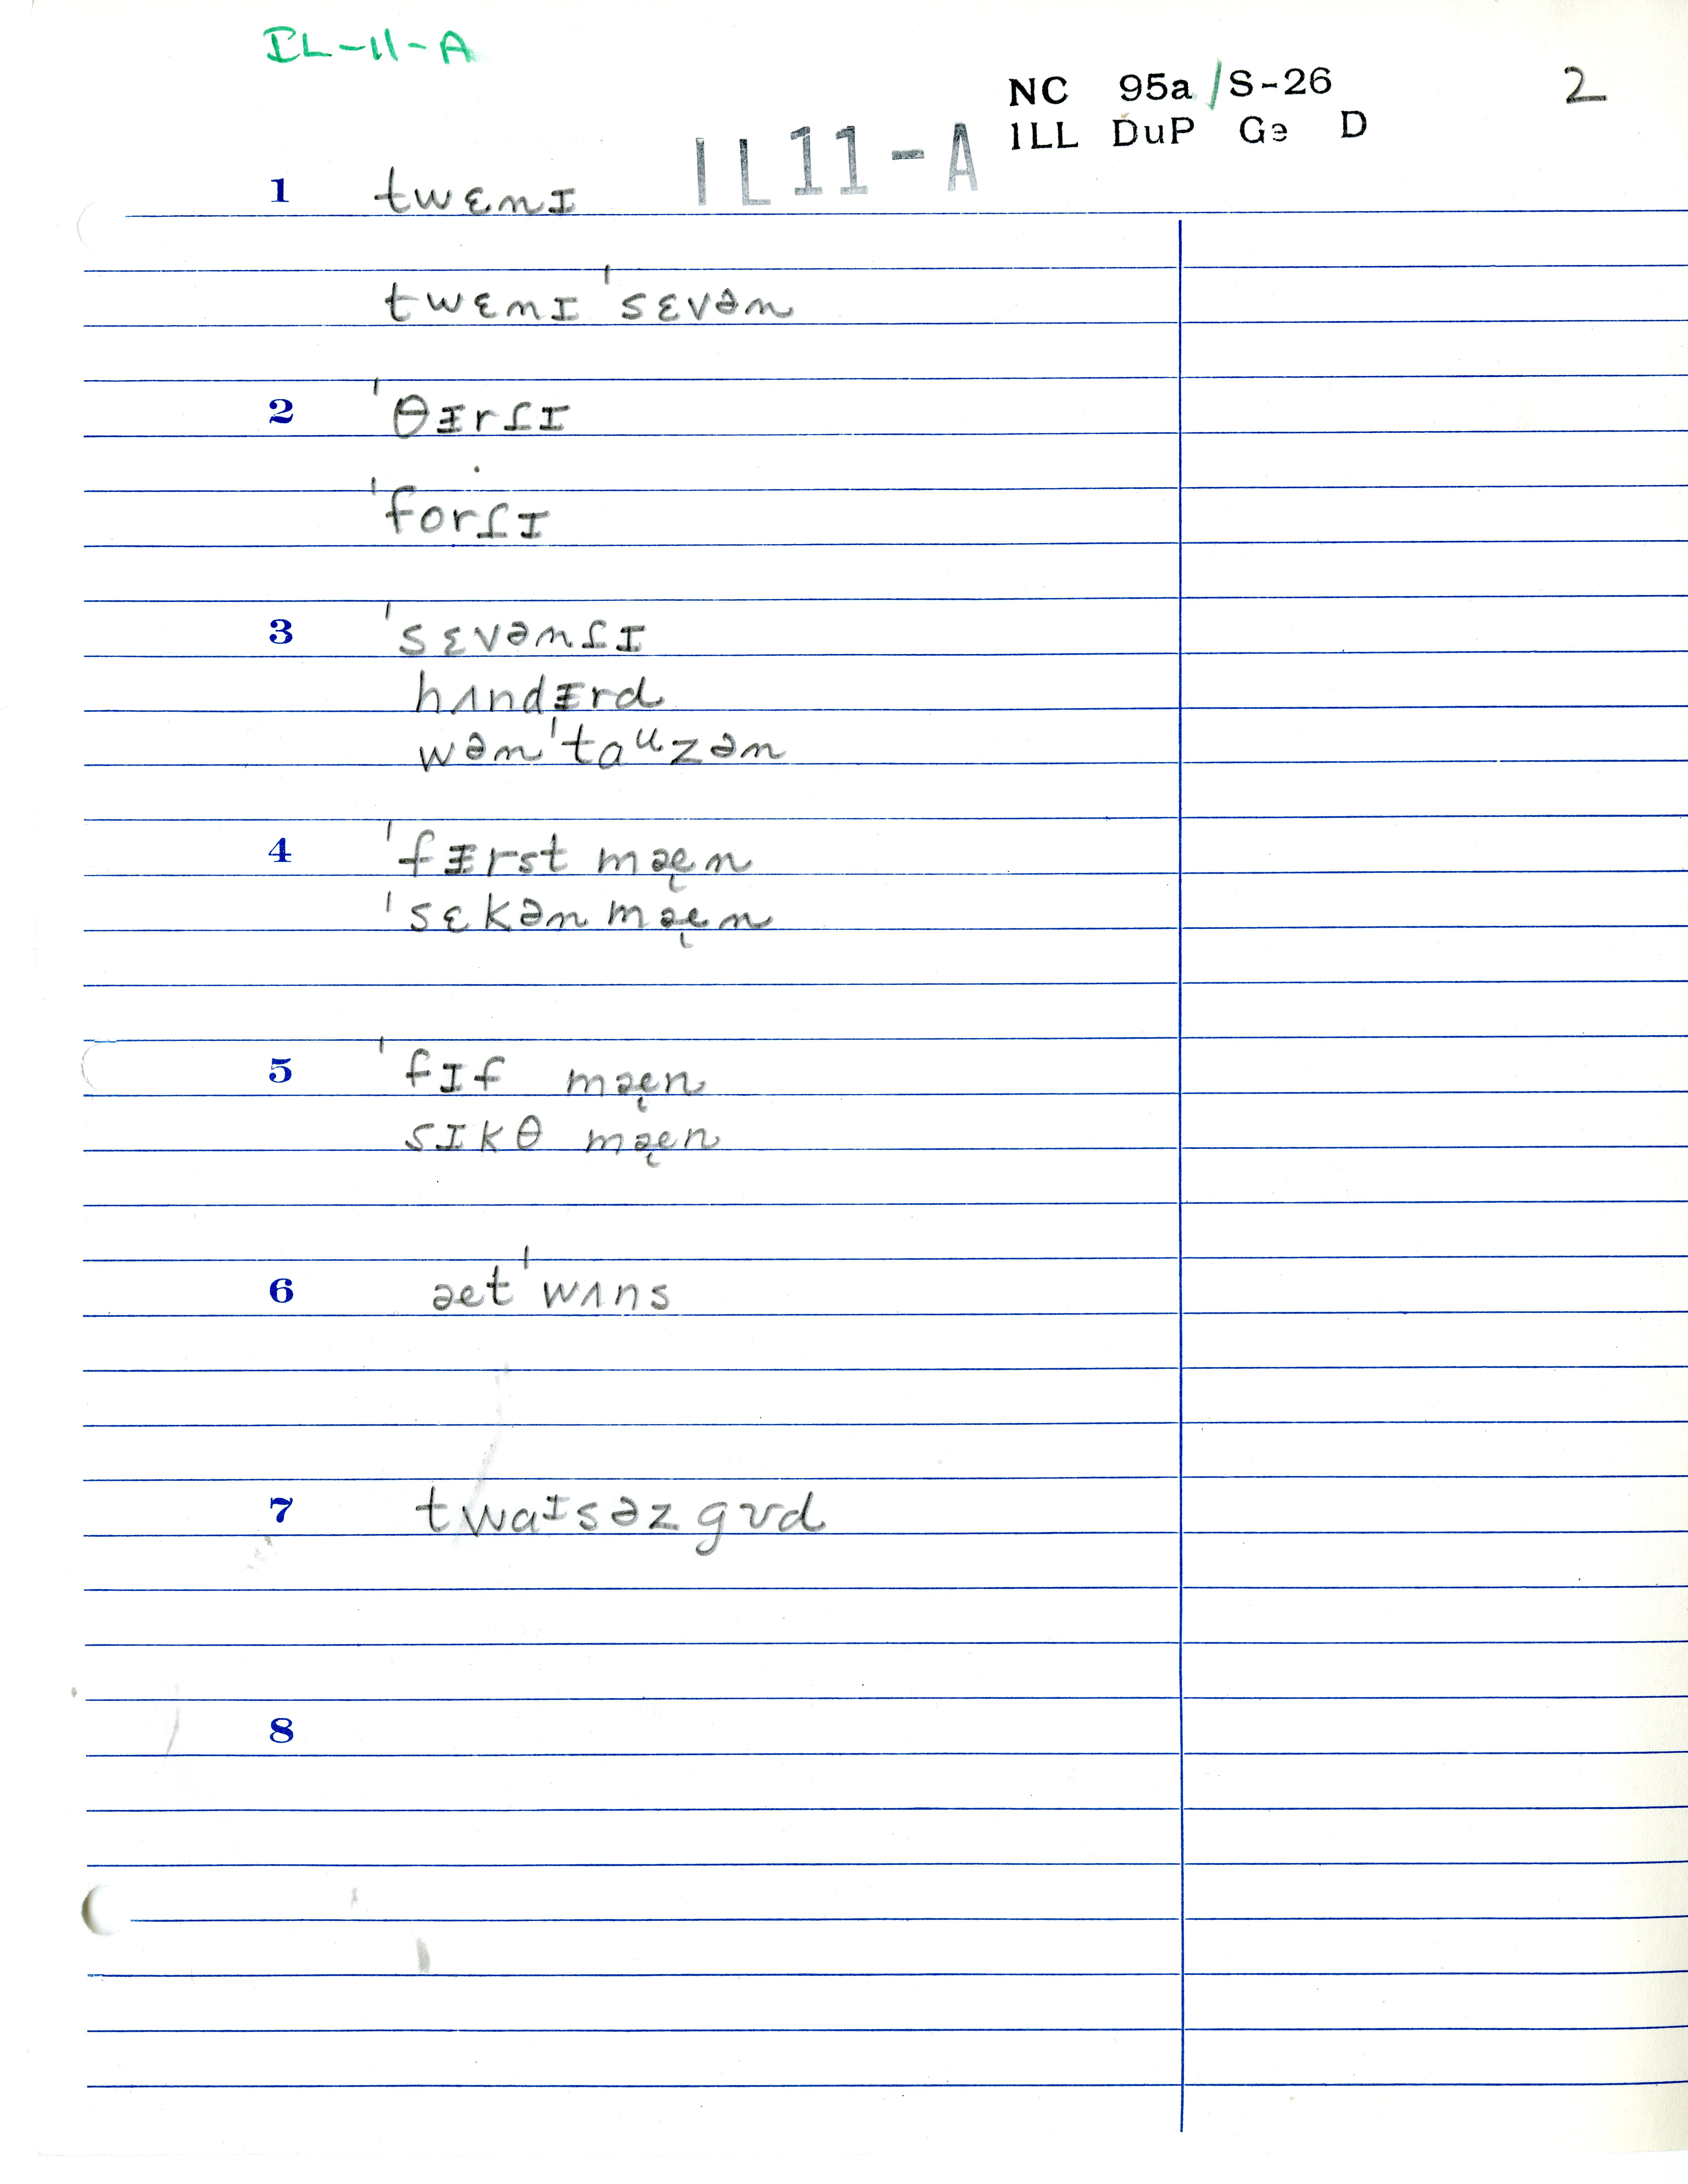 IL-11-A
NC 95a/S-26 2
ILL DuP Gə D
IL11-A
1 twɛnɪ
twɛnɪ ˈsɛvən
2 ˈθᵻrɾɪ
ˈforɾɪ
3 ˈsɛvənɾɪ
hʌndᵻrd
wənˈtaᵘzən
4 ˈfᵻrst mæ̨n
ˈsɛkən mæ̨n
5 ˈfɪf mæ̨n
sɪkθ mæ̨n
6 ætˈwʌns
7 twaᶦsəz gʊd
8